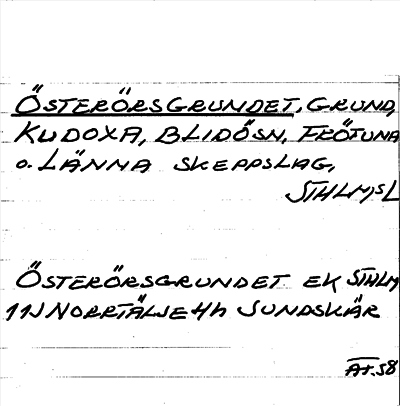 ÖSTERÖRSGRUNDET, GRUND,
KUDOXA, BLIDÖSN, FRÖTUNA
o. LÄNNA SKEPPSLAG,
STHLMS L
ÖSTERÖRSGRUNDET EK STHLM
11J NORRTÄLJE 4h SUNDSKÄR
AT. 58